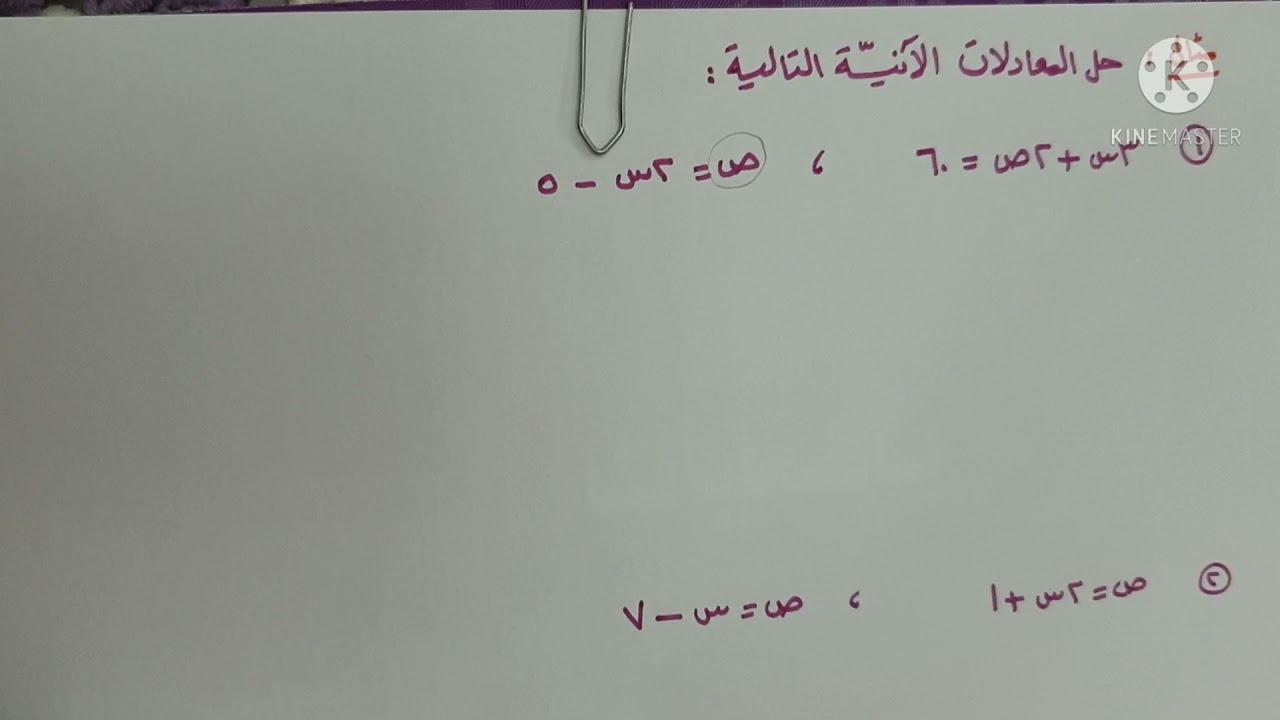 حل المعادلات الآنيّة التالية :
① ٣س + ٢ص = ٦٠ ، ص = ٢س - ٥
② ص = ٢س + ١ ، ص = س - ٧
KINEMASTER